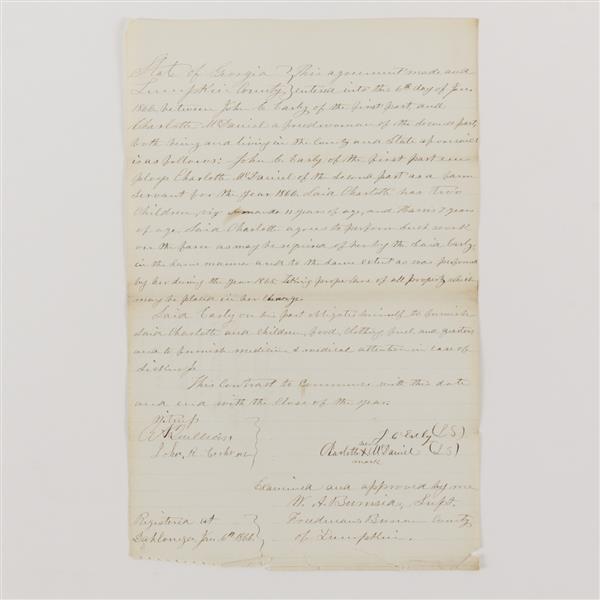 State of Georgia } This agreement made and
Lumpkin County } entered into this 6th day of Jan
1866 between John C Early of the first part, and
Charlotte McDaniel a freedwoman of the second part,
both being and living in the County and State aforesaid
is as follows: John C Early of the first part em
ploys Charlotte McDaniel of the second part as a farm
servant for the year 1866. Said Charlott has two
Children, viz 11 years of age, and Harris 7 years
of age, Said Charlotte agrees to perform such work
on the farm as may be required of her by the Said Early,
in the same manner and to the same extent as was performed
by her during the year 1865 taking proper care of all property which
may be placed in her charge.
Said Early on his part obligates himself to furnish
Said Charlott and children, food, clothing fuel and quarters
and to furnish medicine & medical attention in case of
sickness
This Contract to Commence with this date
and end with the close of the year.
Witness
John K
J C Early (LS)
her
Charlotte X McDaniel (LS)
mark
Examined and approved by me
W. A. Burnside, Supt.
Freedmans Bureau County
of Lumpkin.
Registered at
Dahlonega, Jan. 6th 1866